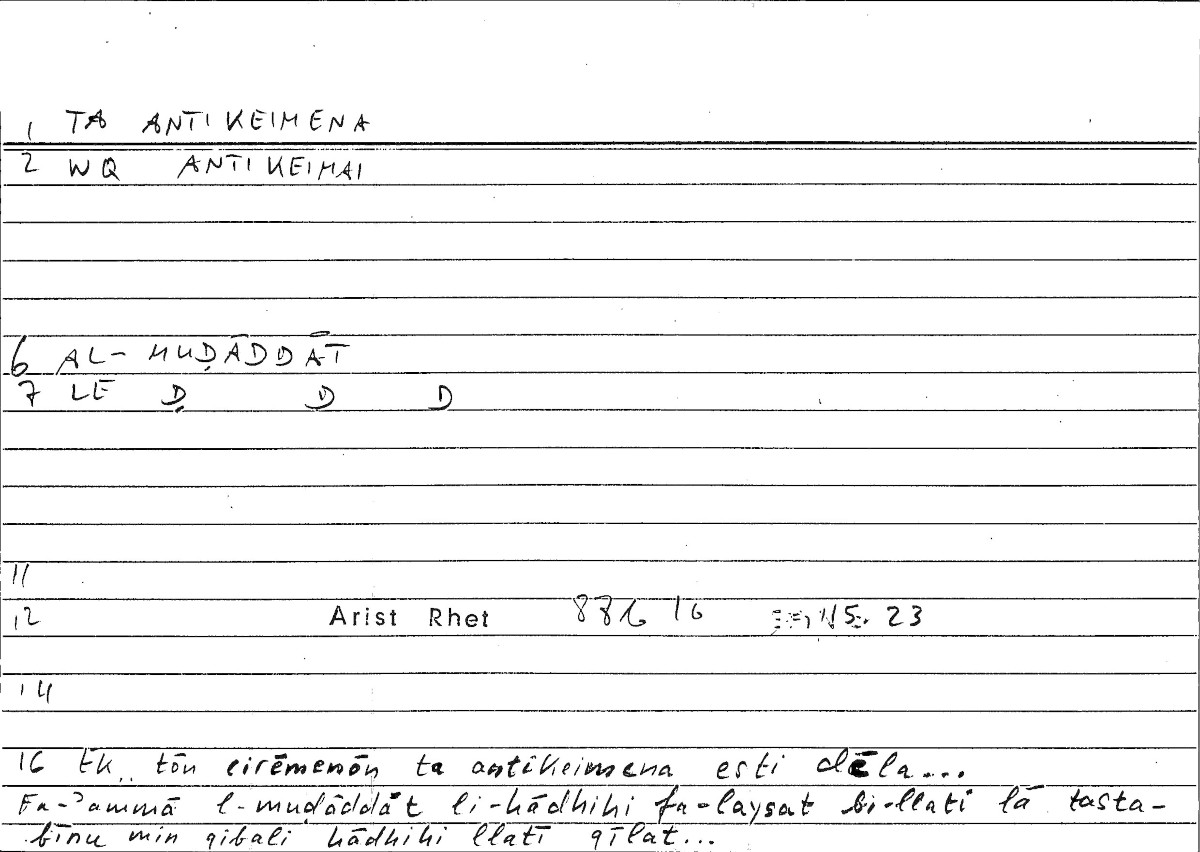 1 TA ANTIKEIMENA
2 WQ ANTIKEIMAI
6 AL-MUḌĀDDĀT
7 LE Ḍ D D
11
12 Arist Rhet 88b 16 23
14
16 Ek tōn eirēmenōn ta antikeimena esti dēla...
Fa-ʾammā l-muḍāddāt li-hādhihi fa-laysat bi-llatī lā tasta-
bīnu min qibali hādhihi llatī qīlat...